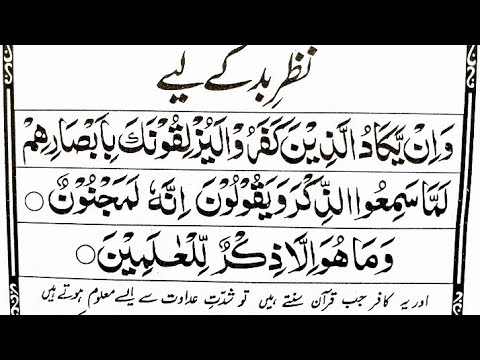 نظرِ بد کے لیے
وَاِنْ يَّكَادُ الَّذِيْنَ كَفَرُوْا لَيُزْلِقُوْنَكَ بِاَبْصَارِهِمْ
لَمَّا سَمِعُوا الذِّكْرَ وَيَقُوْلُوْنَ اِنَّهٗ لَمَجْنُوْنٌ ○
وَمَا هُوَ اِلَّا ذِكْرٌ لِّلْعٰلَمِيْنَ ○
اور یہ کافر جب قرآن سنتے ہیں تو شدّتِ عداوت سے ایسے معلوم ہوتے ہیں